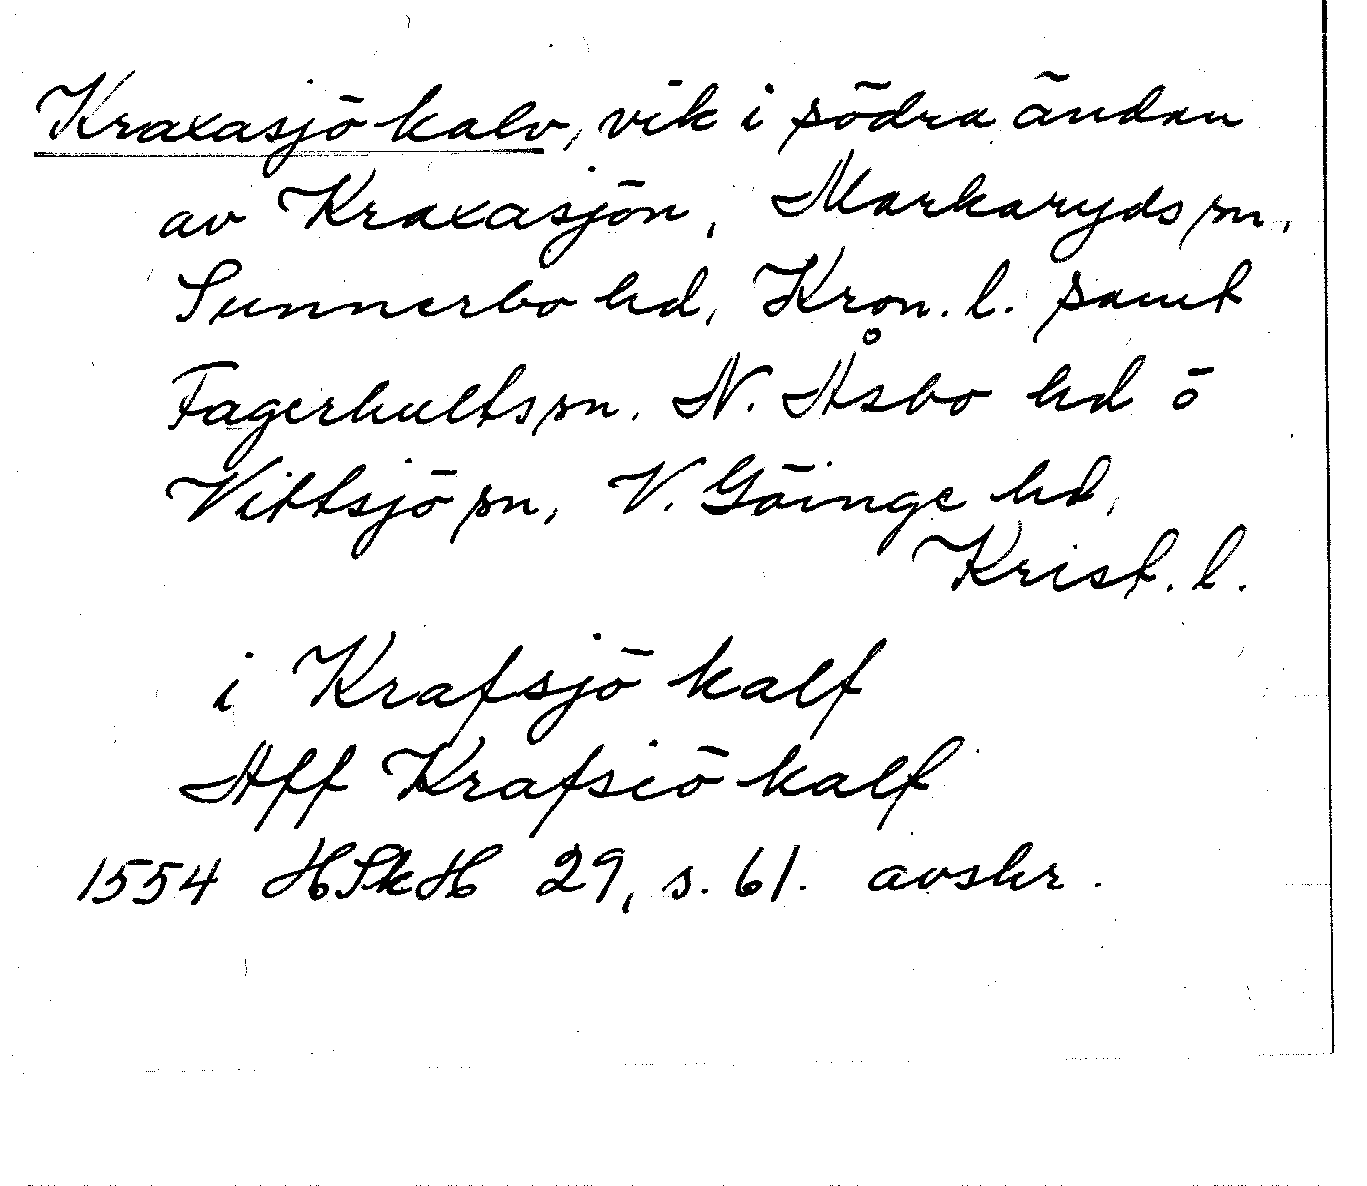 Kraxasjö kalv, vik i södra ändan
av Kraxasjön, Markaryds sn,
Sunnerbo hd, Kron. l. samt
Fagerhults sn. N. Åsbo hd ö
Vittsjö sn, V. Göinge hd,
Krist. l.
i Krafsjö kalf
Aff Krafsiö kalf
1554 HSkH 29, s. 61. avskr.